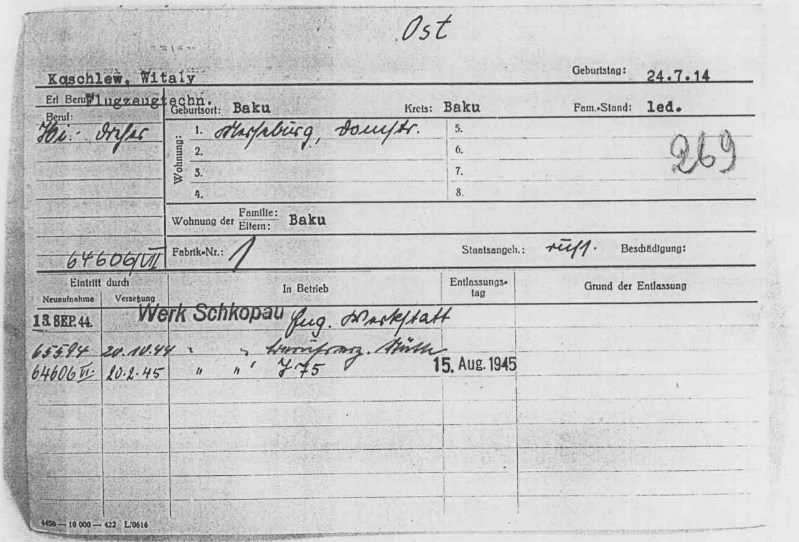 Ost
Koschlew, Witaly
Geburtstag: 24.7.14
Erl Beruf: Flugzeugtechn.
Geburtsort: Baku Kreis: Baku Fam.-Stand: led.
Beruf:
Wohnung:
1. Merseburg, Domstr. 5.
2. 6.
3. 7.
4. 8.
269
Wohnung der Familie: Eltern: Baku
64606/VII
Fabrik-Nr.: 1 Staatsangeh.: russ. Beschädigung:
Eintritt durch
Neuaufnahme Versetzung In Betrieb Entlassungstag Grund der Entlassung
13. SEP. 44. Werk Schkopau Ing. Werkstatt
65594 20.10.44 " "
64606 VI. 20.2.45 " " J 75 15. Aug. 1945
4406 — 10 000 — 422 L/0616